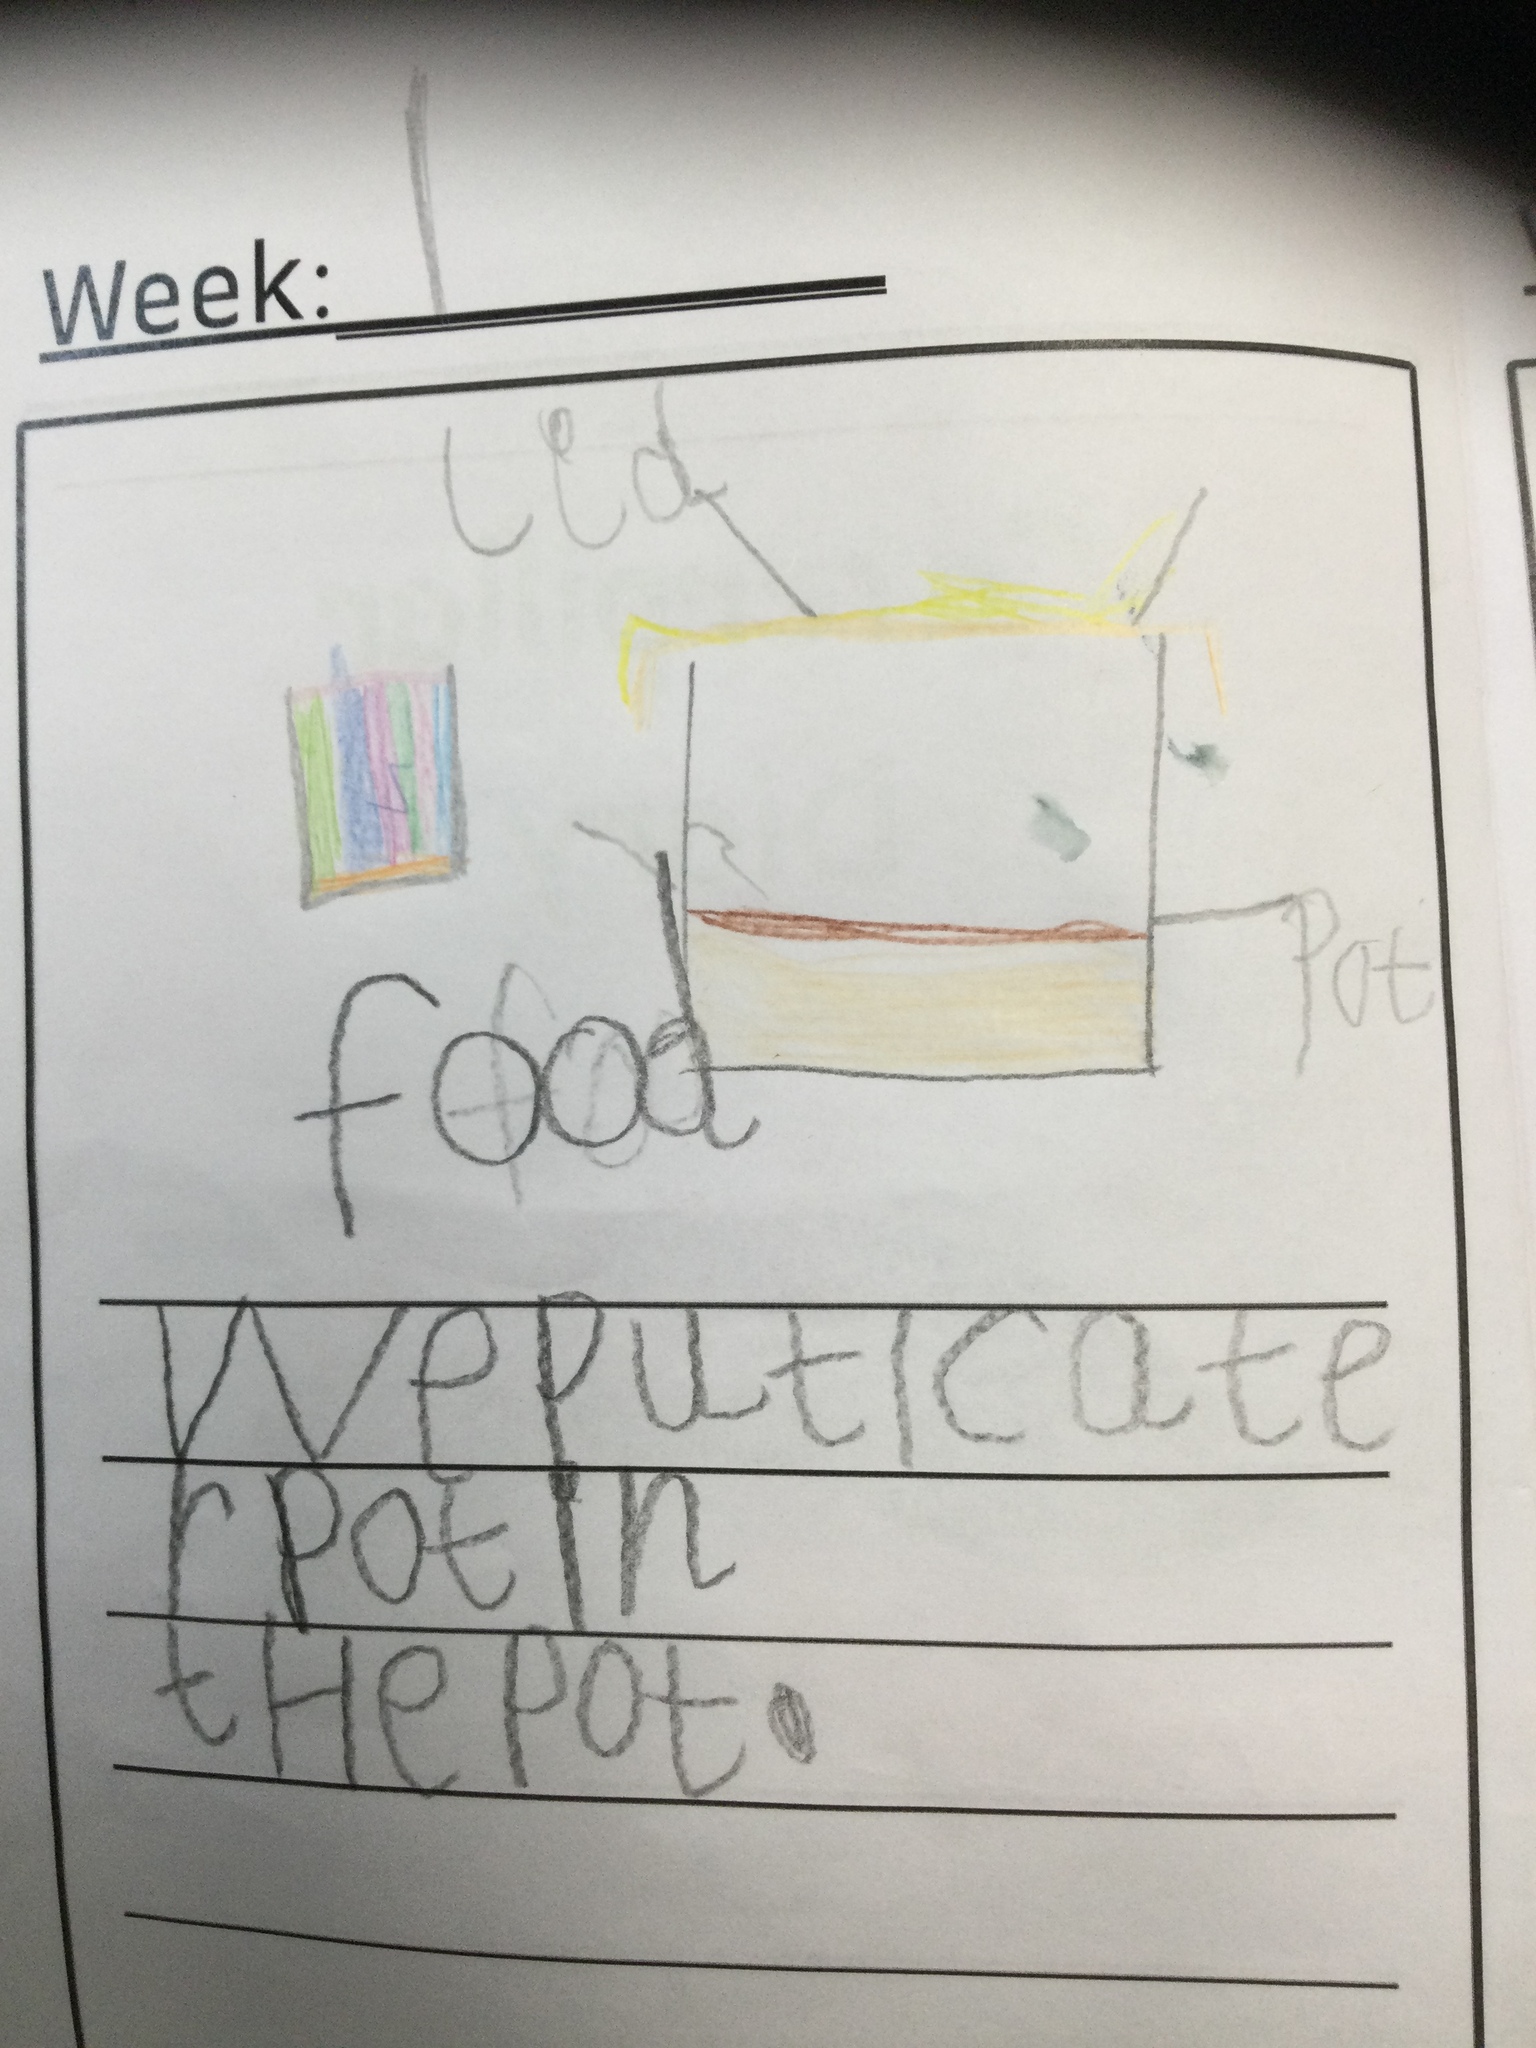 Week: 1
Lid
Pot
food
We put I cate
r pot in
tHe pot.